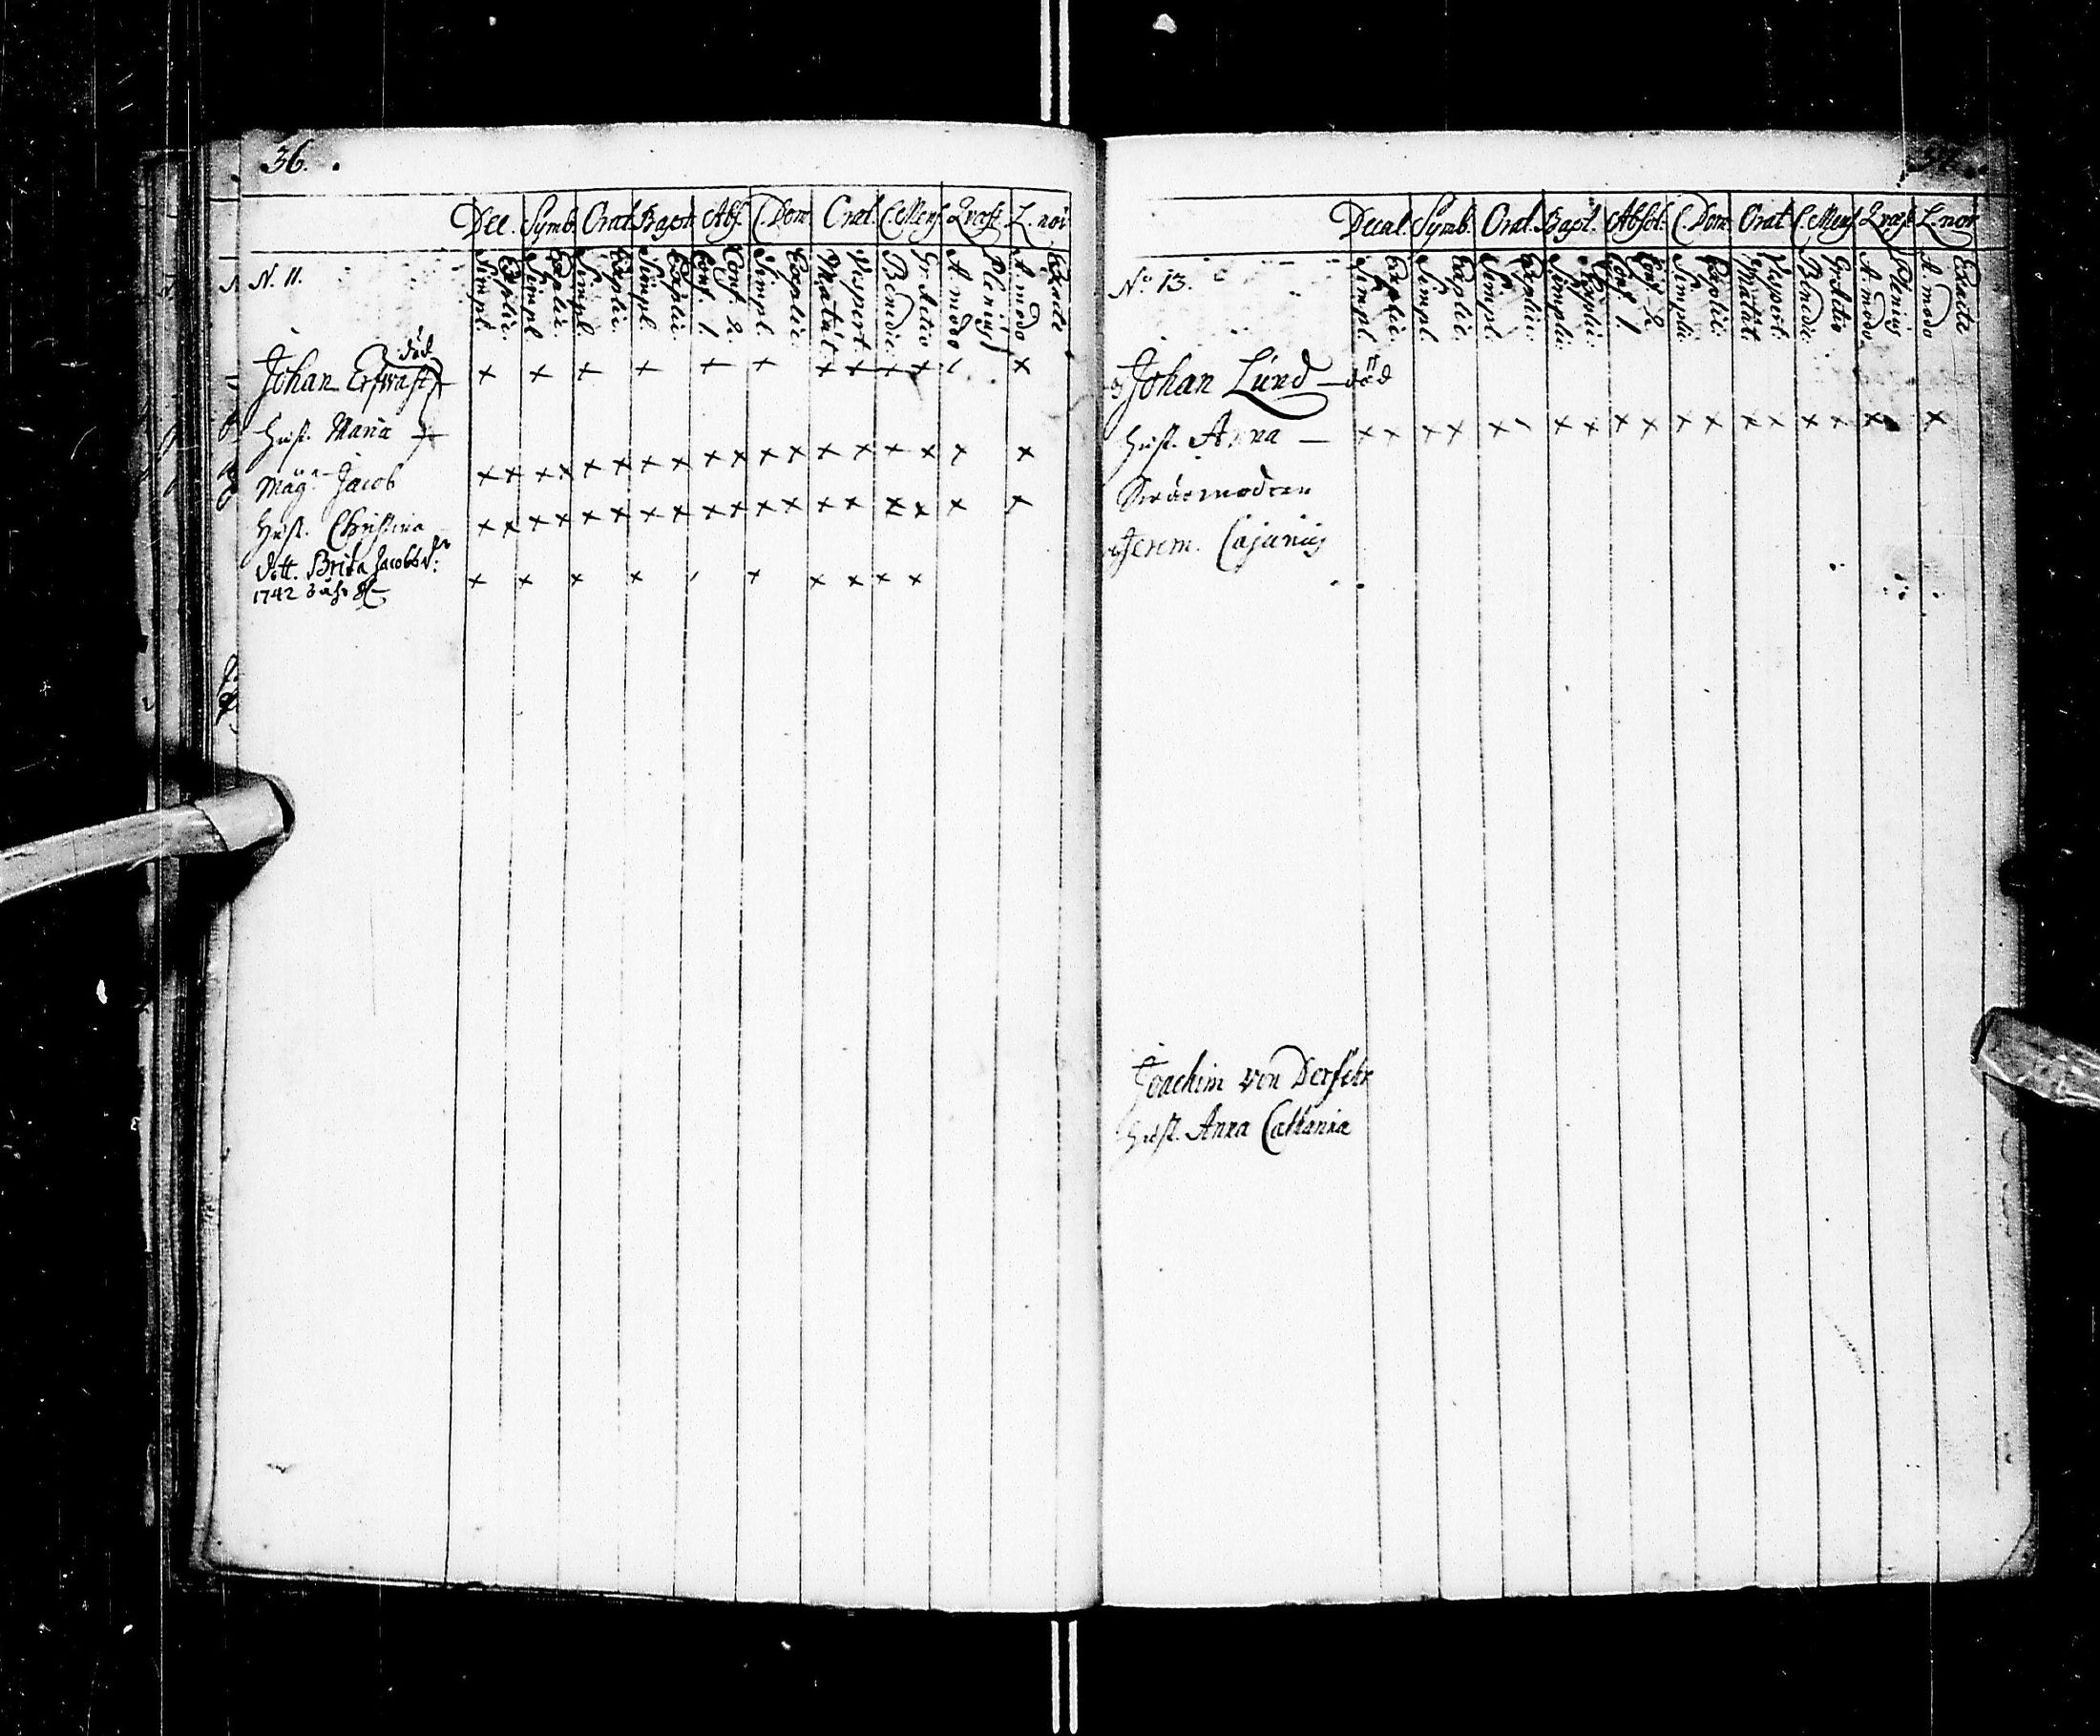 36.
Dec. Symb. Orat. Bapt. Abs. C. Dom. Orat. C. Mens. Quæst. L. nos.
Simpl. Explic. Simpl. Explic. Simpl. Explic. Simpl. Explic. Conf. 1 Conf. 2 Simpl. Explic. Matut. Vespert. Benedic. Gr. Actio A. modo Plenius A. modo Exacte
N. 11.
död
Johan Erfwast
Hust. Maria
Mag. Jacob
Hust. Christina
dott. Brita Jacobsdr.
1742
37.
Decal. Symb. Orat. Bapt. Absol. C. Dom. Orat. C. Mens. Quæst. L. nos.
Simpl. Explic. Simpl. Explic. Simpl. Explic. Simpl. Explic. Conf. 1. Conf. 2 Simpl. Explic. Matut. Vespert. Benedic. Gr. Actio A. modo Plenius A. modo Exacte
No. 13.
Johan Lund — död
Hust. Anna —
Swärmodren
Jerem. Cajanus
Joachim von Derfelt
Hust. Anna Catharina